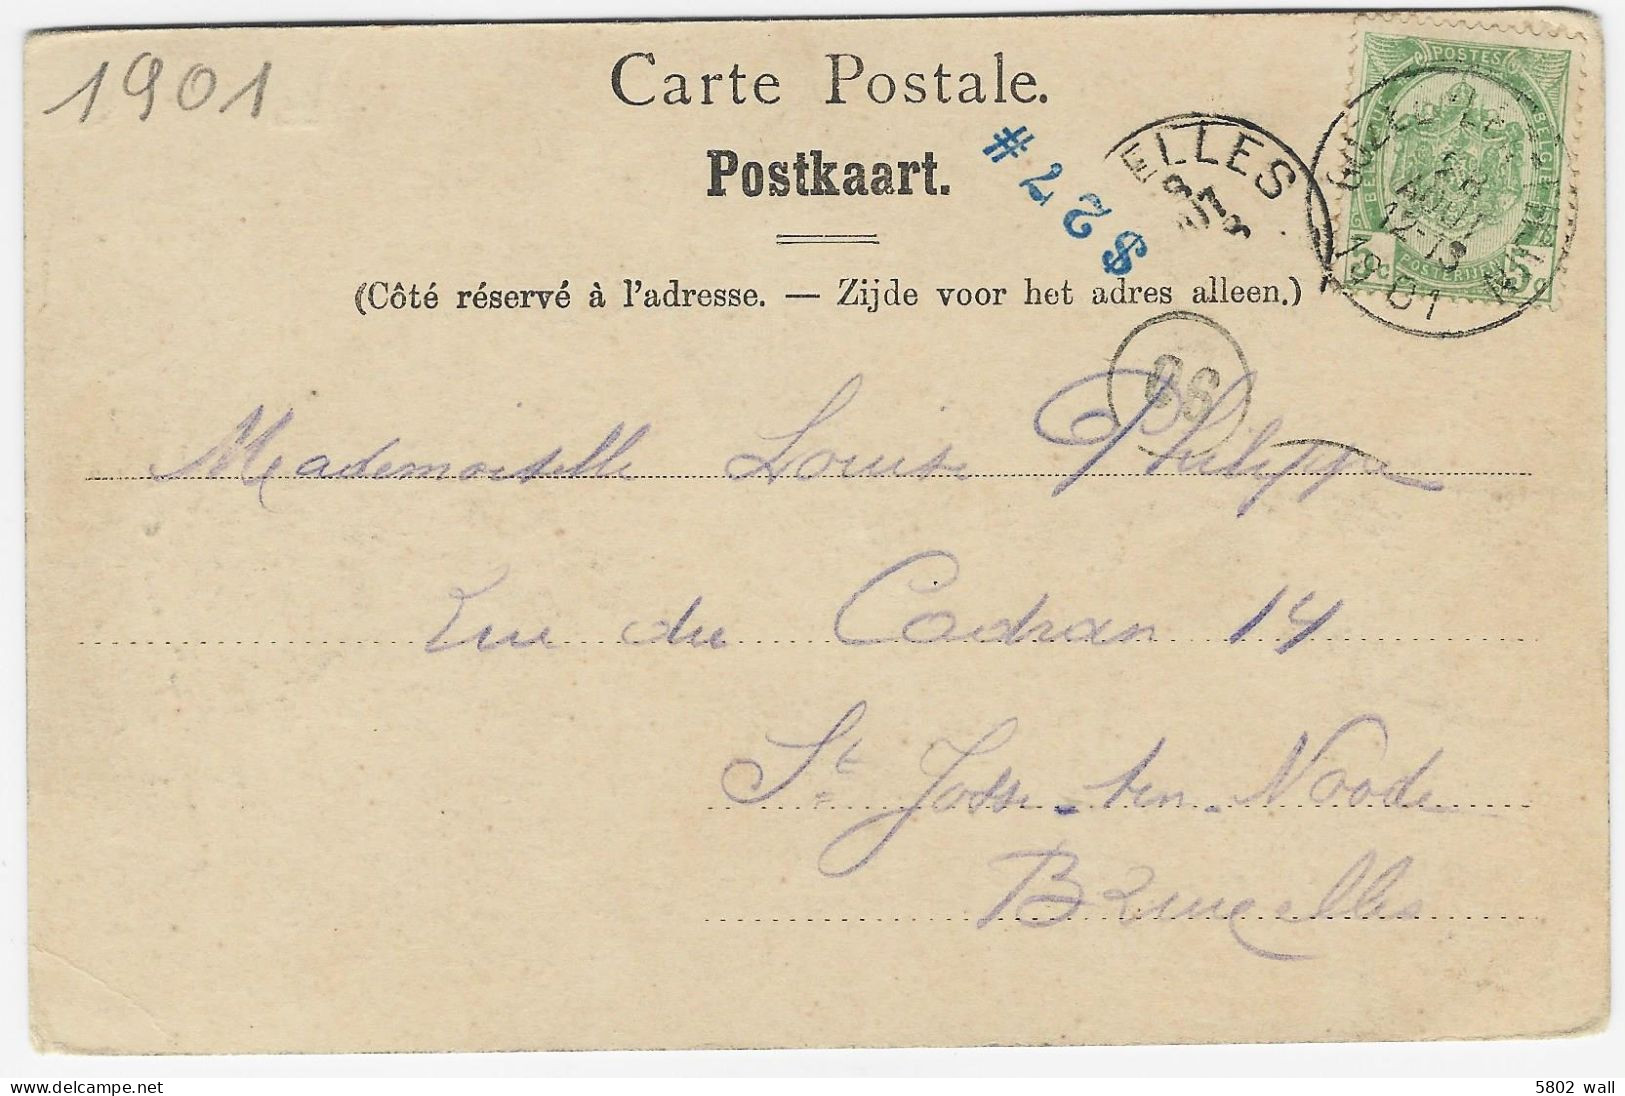 1901
Carte Postale.
Postkaart.
(Côté réservé à l'adresse. — Zijde voor het adres alleen.)
# 228
ELLES
POSTES
BELGIQUE
BELGIE
POSTERIJEN
28
AOUT
12-13
1901
Mademoiselle Louise Philippe
Rue du Cadran 14
St Josse-ten-Noode
Bruxelles
5802 wall
delcampe.net